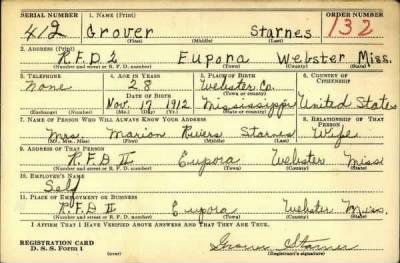 SERIAL NUMBER 1. NAME (Print) ORDER NUMBER
412 Grover Starnes 132
(First) (Middle) (Last)
2. ADDRESS (Print)
R.F.D. 2 Eupora Webster Miss.
(Number and street or R. F. D. number) (Town) (County) (State)
3. TELEPHONE 4. AGE IN YEARS 5. PLACE OF BIRTH 6. COUNTRY OF CITIZENSHIP
None 28 Webster Co.
DATE OF BIRTH (Town or county)
Nov. 17 1912 Mississippi United States
(Exchange) (Number) (Mo.) (Day) (Yr.) (State or country)
7. NAME OF PERSON WHO WILL ALWAYS KNOW YOUR ADDRESS 8. RELATIONSHIP OF THAT PERSON
Mrs. Marion Rivers Starnes Wife
(Mr., Mrs., Miss) (First) (Middle) (Last)
9. ADDRESS OF THAT PERSON
R.F.D II Eupora Webster Miss
(Number and street or R. F. D. number) (Town) (County) (State)
10. EMPLOYER'S NAME
Self
11. PLACE OF EMPLOYMENT OR BUSINESS
R.F.D II Eupora Webster Miss.
(Number and street or R. F. D. number) (Town) (County) (State)
I AFFIRM THAT I HAVE VERIFIED ABOVE ANSWERS AND THAT THEY ARE TRUE.
REGISTRATION CARD
D. S. S. FORM 1 (over) Grover Starnes
(Registrant's signature)